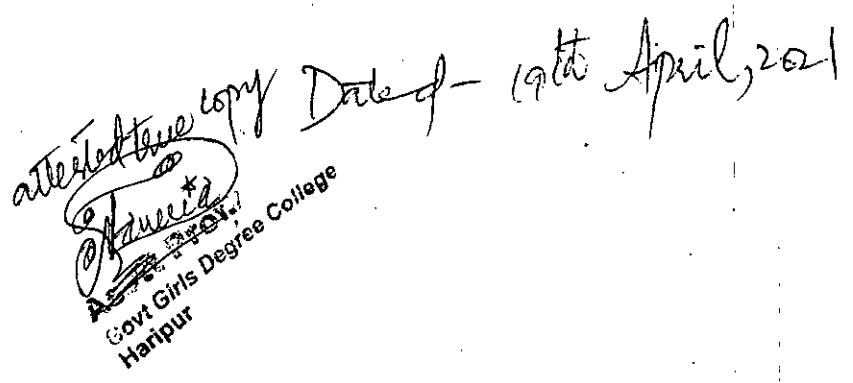 attested true copy Dated- 19th April, 2021
Govt Girls Degree College
Haripur